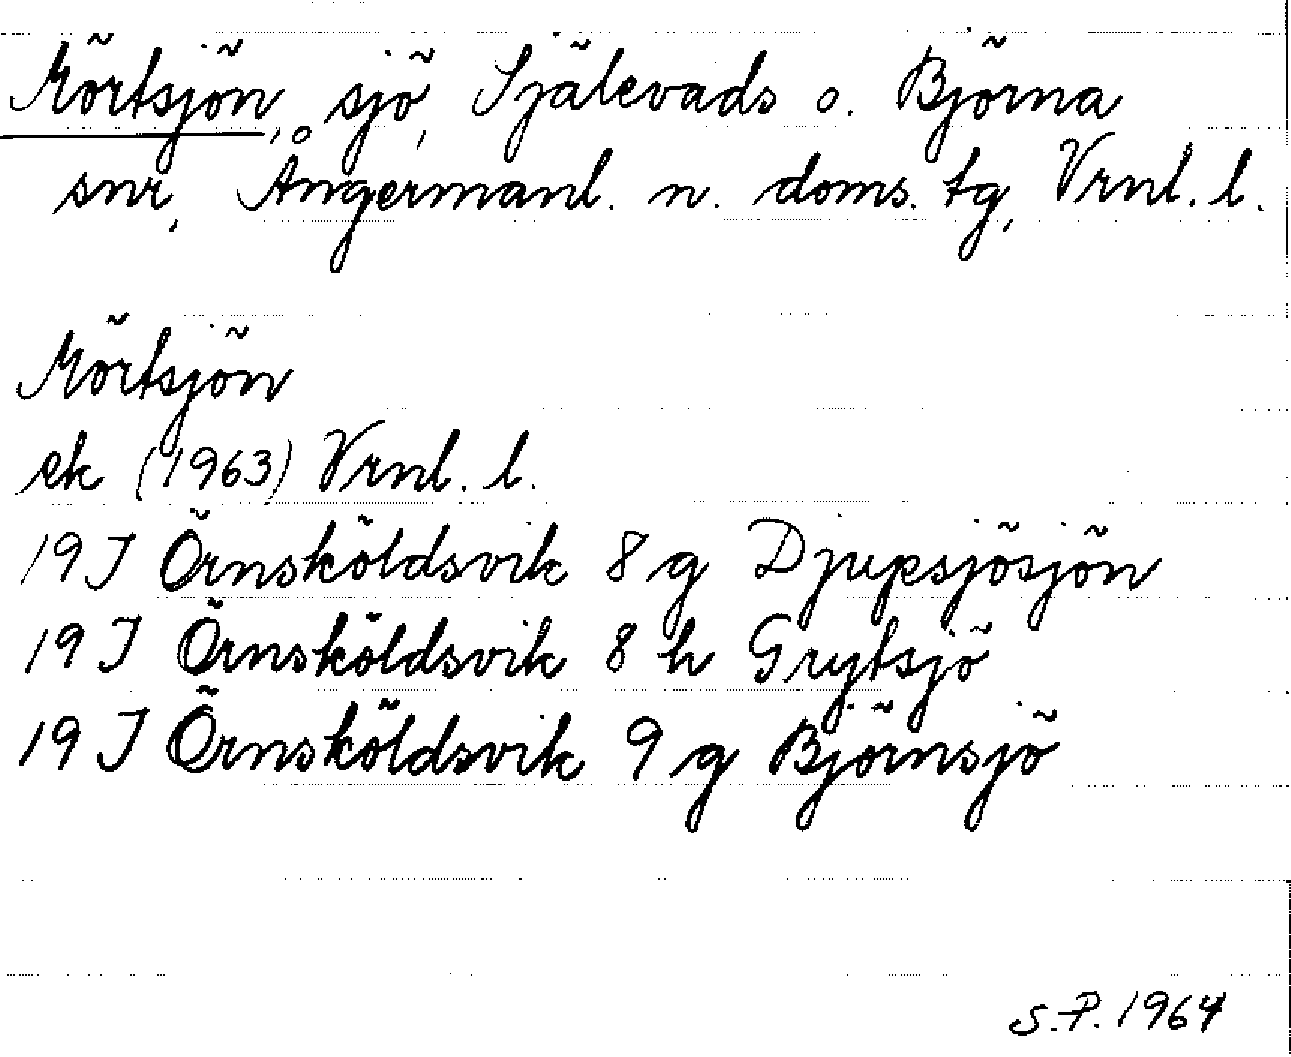 Mörtsjön, sjö, Själevads o. Björna
snr, Ångermanl. n. doms. tg, Vrnl. l.
Mörtsjön
ek (1963) Vrnl. l.
19 J Örnsköldsvik 8 g Djupsjösjön
19 J Örnsköldsvik 8 h Grytsjö
19 J Örnsköldsvik 9 g Björnsjö
S.P. 1964